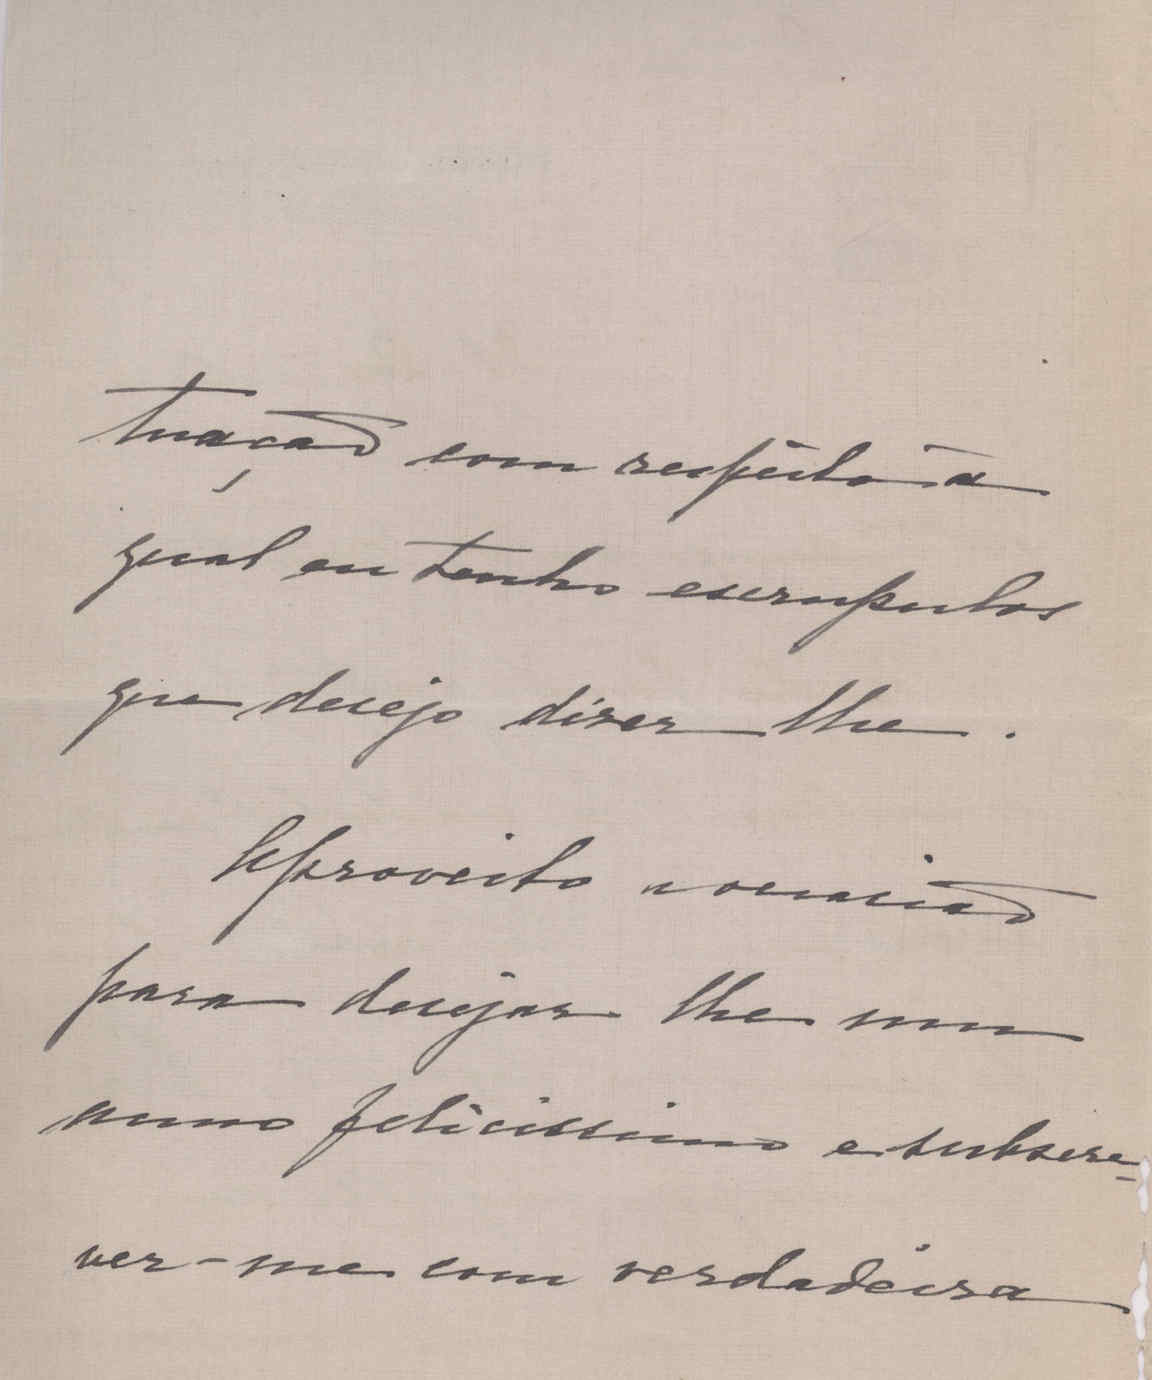 tuação com respeito á
qual eu tenho escrupulos
que desejo dizer lhe.
Aproveito a occasião
para desejar lhe um
anno felicissimo e subscre-
ver-me com verdadeira